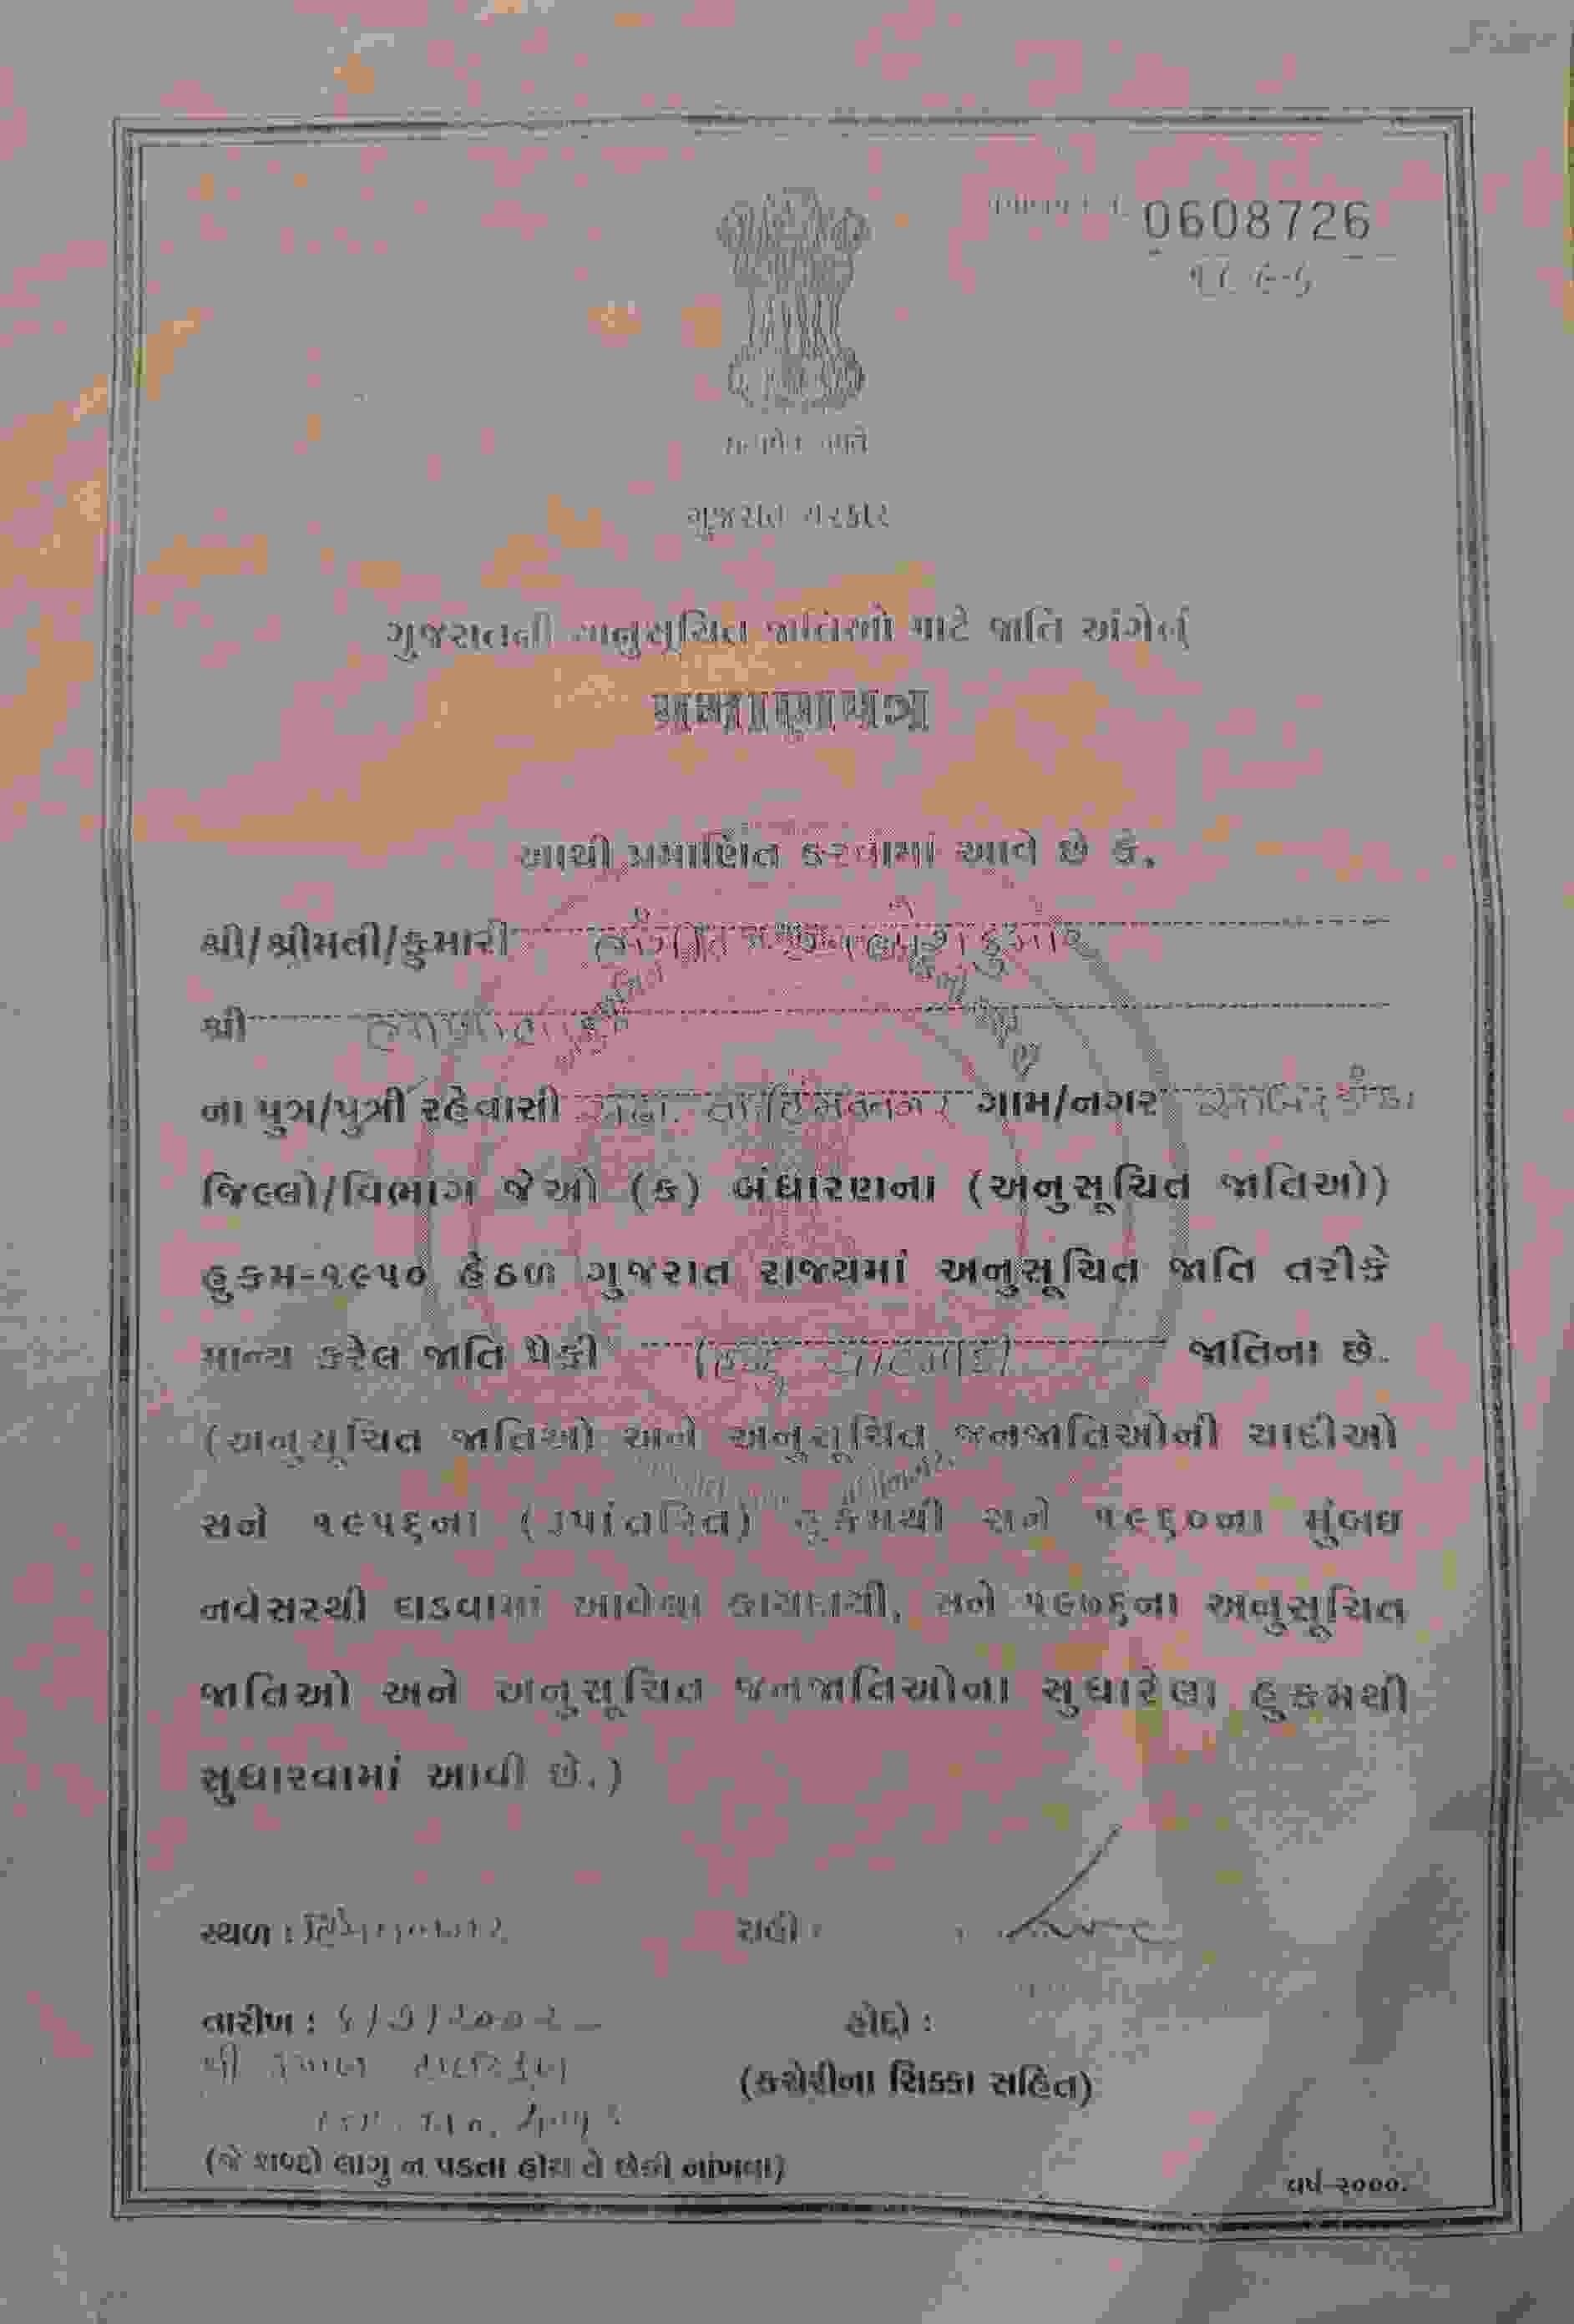 પ્રમાણપત્ર નં. 0608726
સત્યમેવ જયતે
ગુજરાત સરકાર
ગુજરાતની અનુસૂચિત જાતિઓ માટે જાતિ અંગેનું
પ્રમાણપત્ર
આથી પ્રમાણિત કરવામાં આવે છે કે,
શ્રી/શ્રીમતી/કુમારી
શ્રી
ના પુત્ર/પુત્રી રહેવાસી તા. હિંમતનગર ગામ/નગર સાબરકાંઠા
જિલ્લો/વિભાગ જેઓ (ક) બંધારણના (અનુસૂચિત જાતિઓ)
હુકમ-૧૯૫૦ હેઠળ ગુજરાત રાજ્યમાં અનુસૂચિત જાતિ તરીકે
માન્ય કરેલ જાતિ પૈકી હિન્દુ જાતિના છે.
(અનુસૂચિત જાતિઓ અને અનુસૂચિત જનજાતિઓની યાદીઓ
સને ૧૯૫૬ના (રૂપાંતરિત) હુકમથી સને ૧૯૬૦ના મુંબઇ
નવેસરથી ઘડવામાં આવેલા કાયદાથી, સને ૧૯૭૬ના અનુસૂચિત
જાતિઓ અને અનુસૂચિત જનજાતિઓના સુધારેલા હુકમથી
સુધારવામાં આવી છે.)
સ્થળ : હિંમતનગર સહી :
તારીખ : ૬/૭/૨૦૦૨ હોદ્દો :
શ્રી
(કચેરીના સિક્કા સહિત)
(જે શબ્દો લાગુ ન પડતા હોય તે છેકી નાંખવા)
વર્ષ-૨૦૦૦.